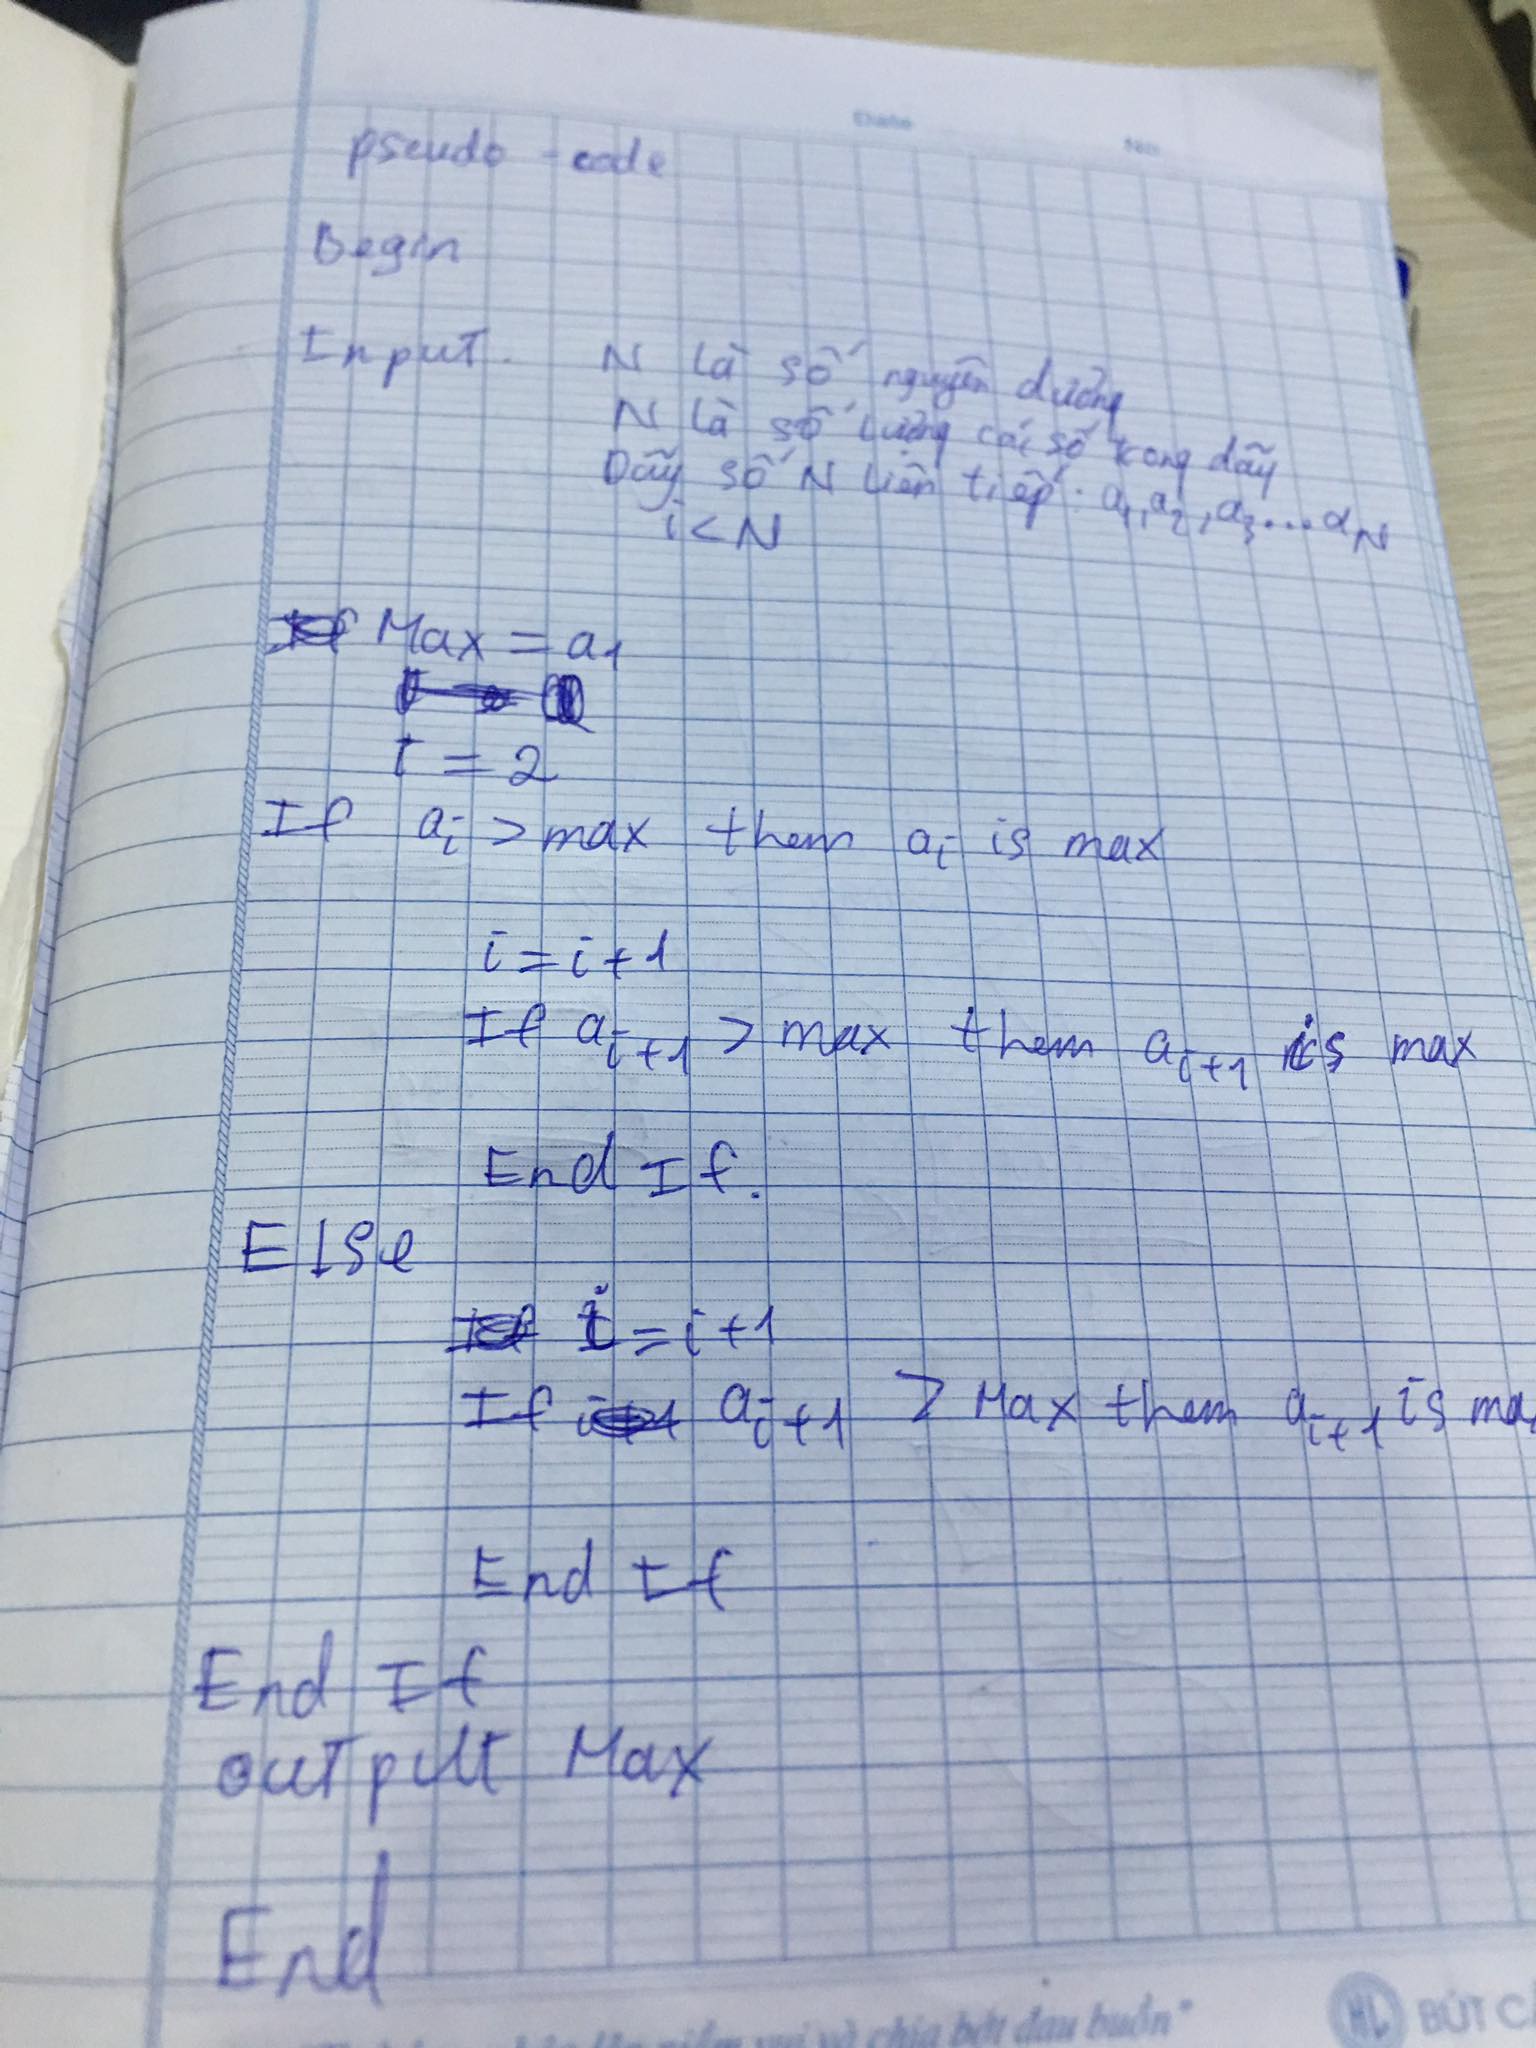 Date
No.
pseudo - code
Begin
Input. N là số nguyên dương
N là số lượng các số trong dãy
Dãy số N liên tiếp: a1, a2, a3.... aN
i < N
Max = a1
I = 2
If ai > max them ai is max
i = i + 1
If ai+1 > max them ai+1 is max
End If.
Else
i = i + 1
If ai+1 > Max them ai+1 is ma
End If
End If
output Max
End
niềm vui và chia bớt đau buồn"
HL BÚT C